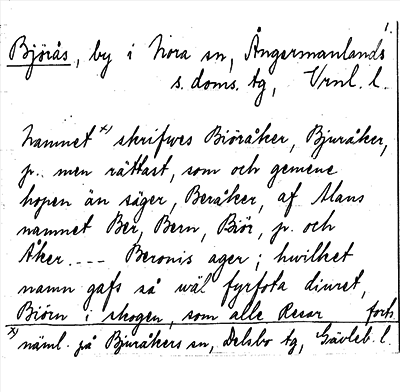 1.
Björås, by i Nora sn, Ångermanlands
s. doms. tg, Vrnl. l.
Namnet x) skrifwes Biöråker, Bjuråker,
p. men rättast, som och gemene
hopen än säger, Beråker, af Mans
namnet Ber, Bern, Biör, p. och
Åker.---- Beronis ager; hwilket
namn gafs så wäl fyrfota diuret,
Biörn i skogen, som alle Resar forts.
x) näml. på Bjuråkers sn, Delsbo tg, Gävleb. l.